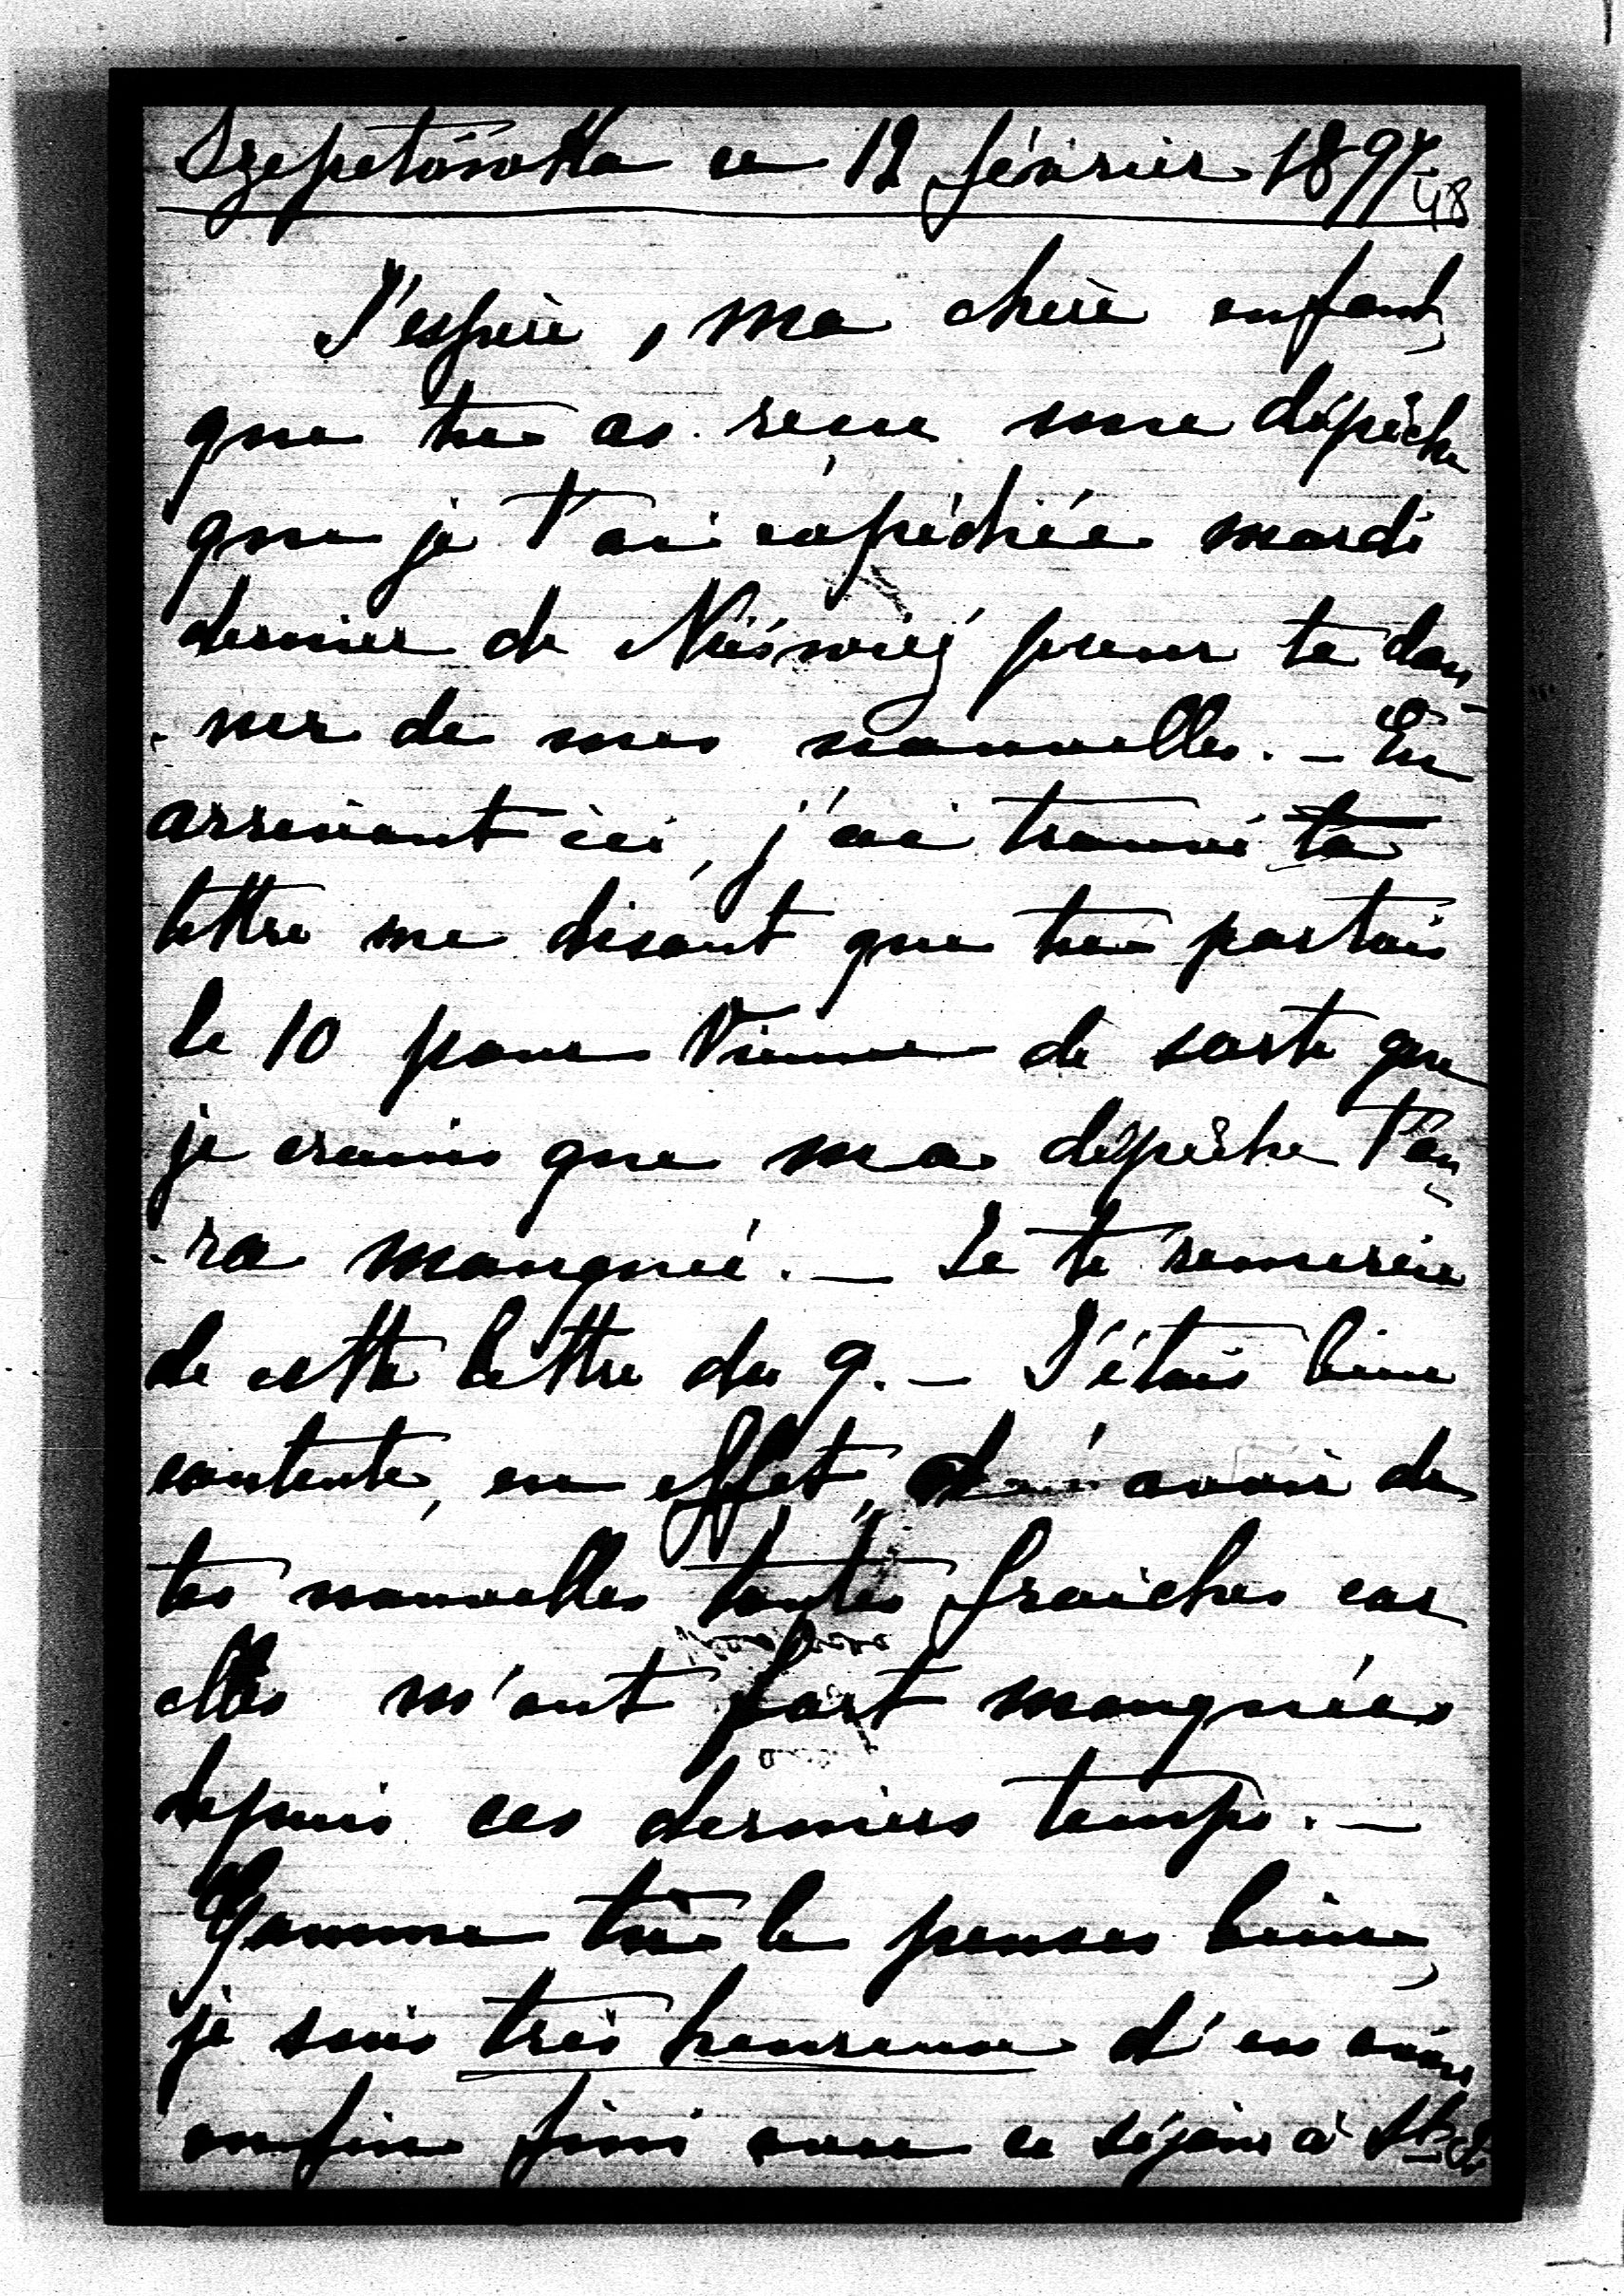 Szepetówka ce 12 février 1897.
48
J'espère, ma chère enfant,
que tu as reçu une dépêche
que je t'ai expédiée mardi
dernier de Nieśwież pour te don-
-ner de mes nouvelles. — En
arrivant ici, j'ai trouvé ta
lettre me disant que tu partais
le 10 pour Vienne de sorte que
je crains que ma dépêche t'au-
-ra manqué. — Je te remercie
de cette lettre du 9. — J'étais bien
contente, en effet, d'avoir de
tes nouvelles toutes fraîches car
elles m'ont fort manquées
depuis ces derniers temps. —
Comme tu le penses bien,
je suis très heureuse d'en avoir
enfin fini avec ce séjour à St. P.